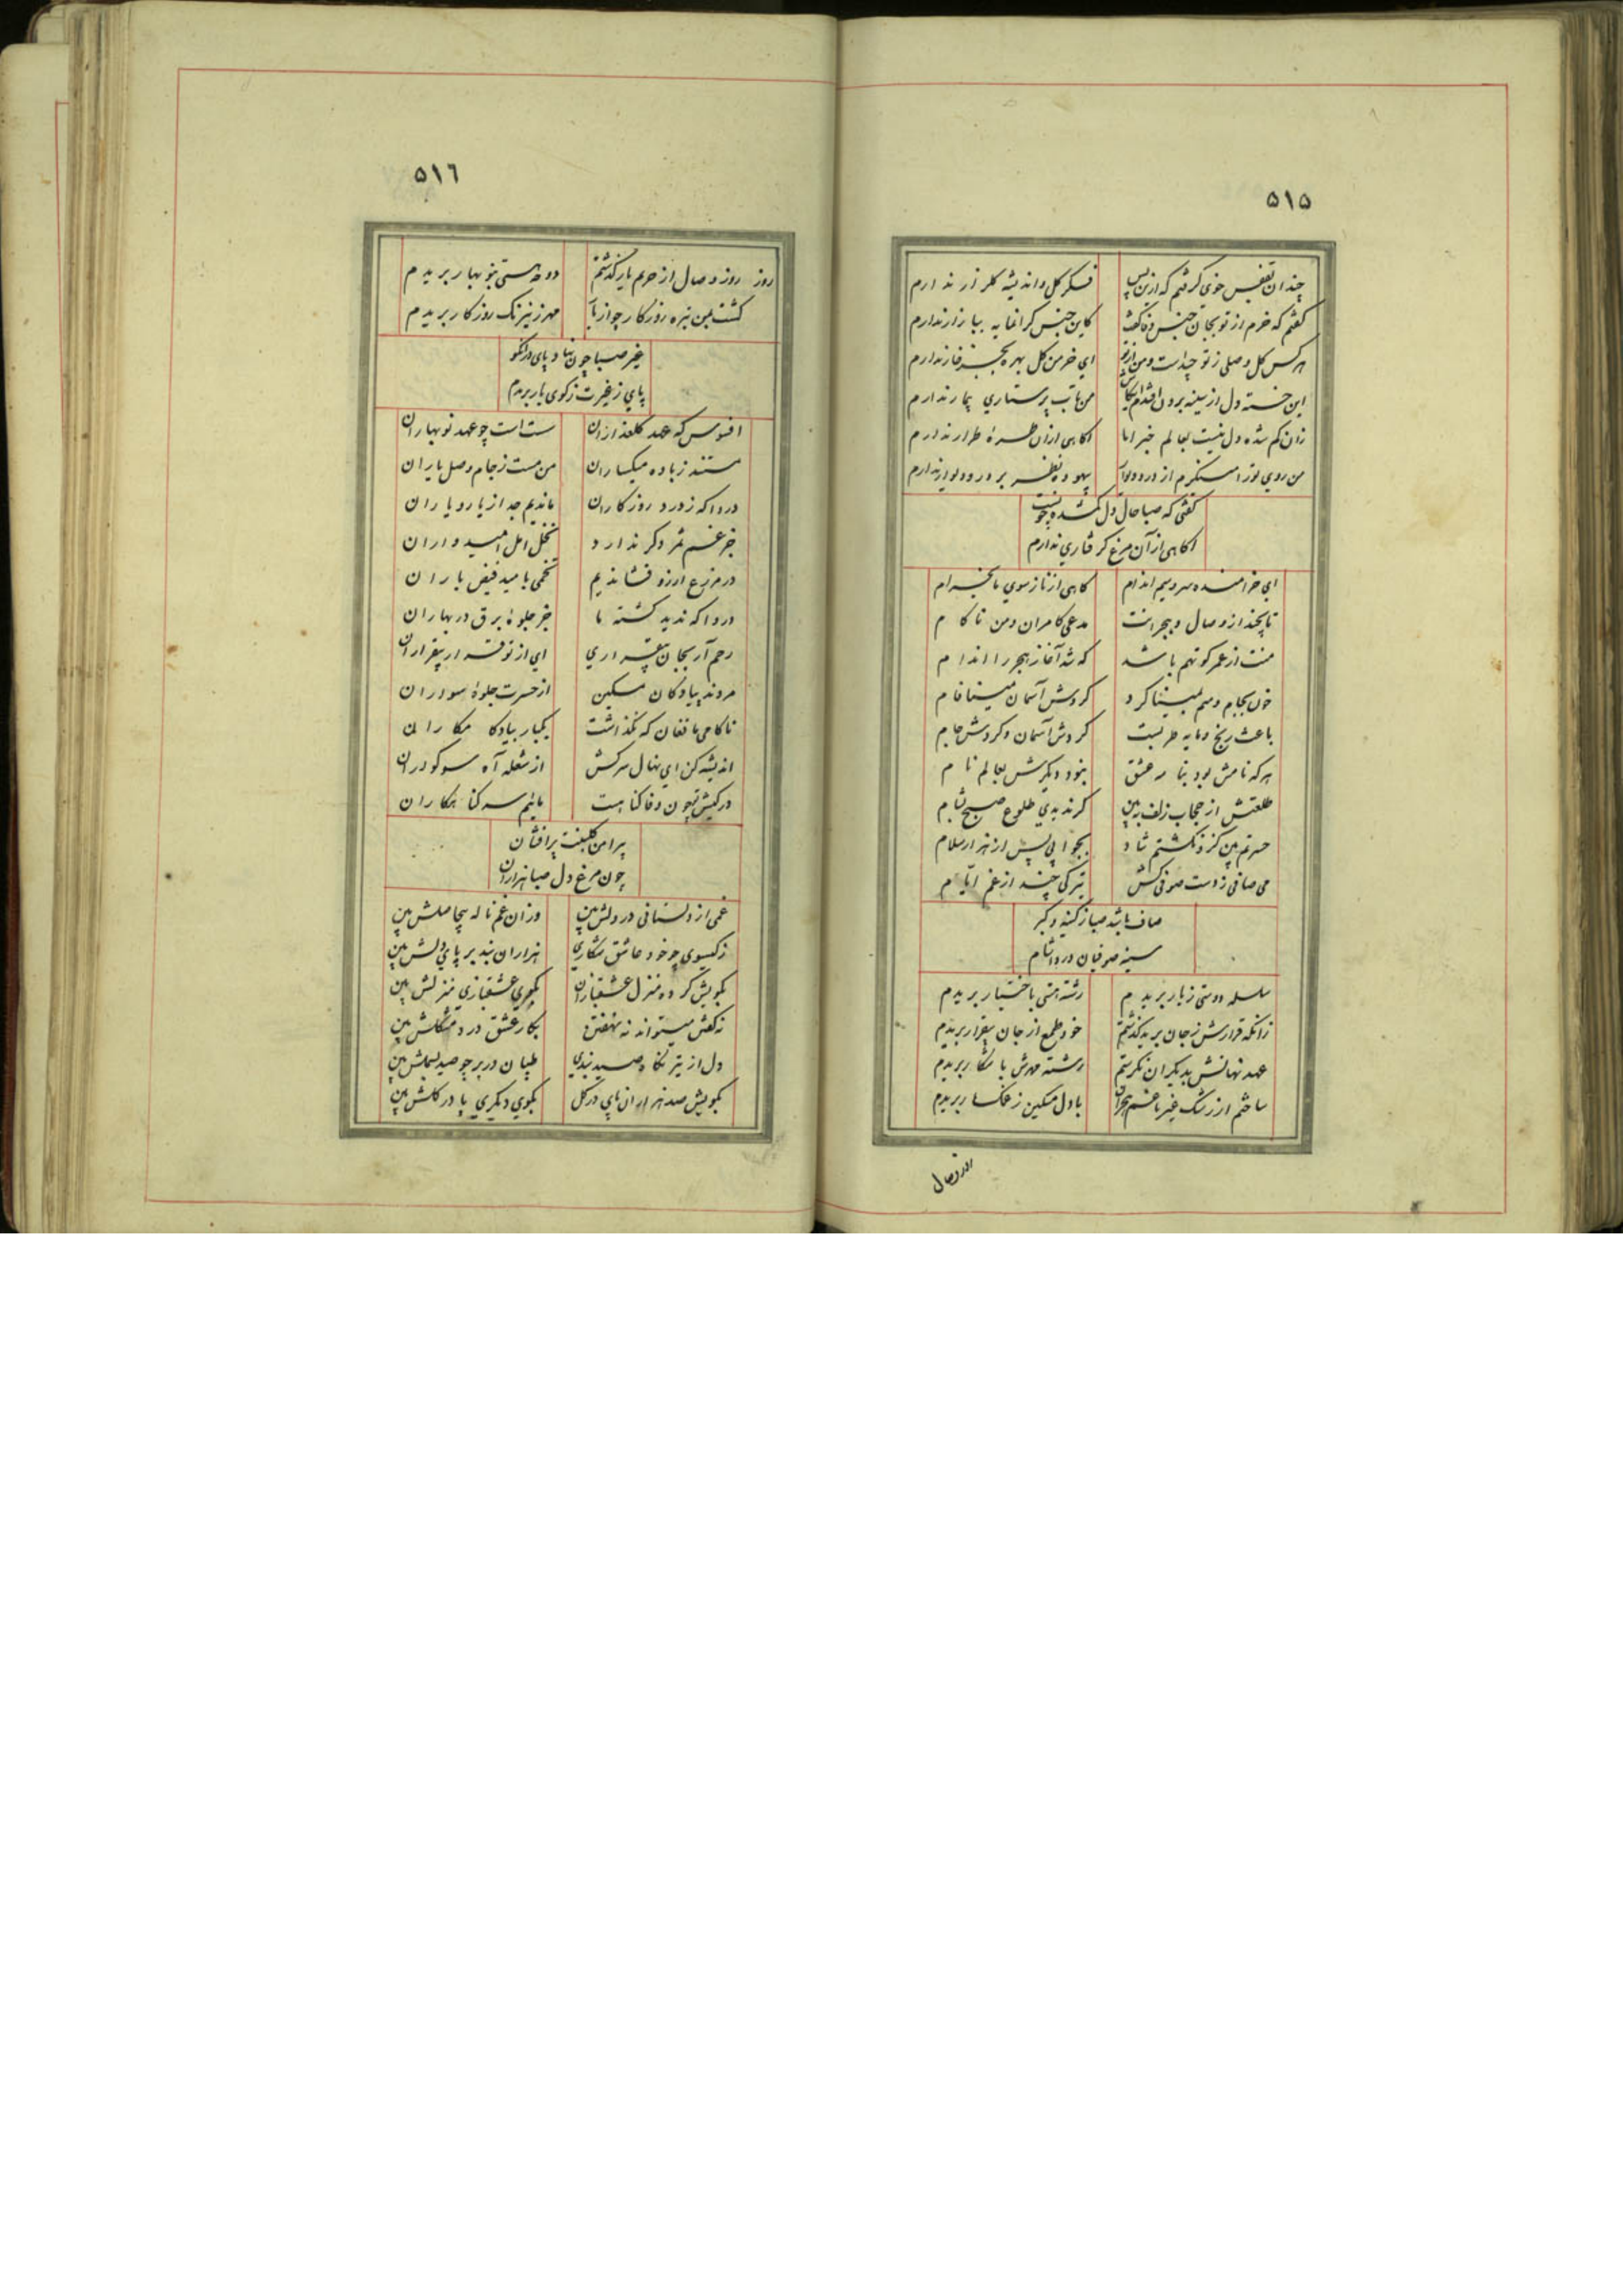 ۵۱۵
چندان بقفس خوی گرفتم که ازین پس فکر گل و اندیشه گلزار ندارم
گفتم که خرم از تو بجان جنس وفا گفت کاین جنس گرانمایه ببازار ندارم
هرکس گل وصلی ز تو چیداست و من از تو ای خرمن گل بهره بجز خار ندارم
این خسته دل از سینه برون افتدم ایکاش من تاب پرستاری بیمار ندارم
زان گم شده دل نیست بعالم خبر اما آگاهی از آن طره طرار ندارم
من روی تو را مینگرم از در و دیوار بیهوده نظر بر در و دیوار ندارم
گفتی که صبا حال دل گمشده چونست
آگاهی از آن مرغ گرفتاری ندارم
ای خرامنده سرو سیم اندام گاهی از ناز سوی ما بخرام
تا بچند از وصال و هجرانت مدعی کامران و من ناکام
منت از عمر کوتهم باشد که شد آغاز هجر را اندام
خون بجام و سم بمینا کرد گردش آسمان مینا فام
باعث رنج و مایه طربست گردش آسمان و گردش جام
هر که نامش بود بنامه عشق نبود دیگرش بعالم نام
طلعتش از حجاب زلف ببین گر ندیدی طلوع صبح بشام
حسرتم بین کزو نگشتم شاد بجوابی پس از هزار سلام
می صافی ز دست صوفی کش تیرگی چند از غم ایام
صاف باشد صبا ز کینه و کبر
سینه صوفیان درد آشام
سلسله دوستی ز یار بریدم رشته هستی باختیار بریدم
زانکه قرارش ز جان برید گذشتم خود طمع از جان بیقرار بریدم
عهد نهانش بدیگران نگرستم رشته مهرش بآشکار بریدم
ساختم از رشک غیر با غم هجران با دل مسکین ز غمگسار بریدم
روز وصال
۵۱٦
روز روز وصال از حرم یار گذشتم دوحه هستی بنوبهار بریدم
گشت بمن تیره روزگار چو از یار مهر ز نیرنگ روزگار بریدم
غیر صبا چون نهاد پای در آن کو
پای ز غیرت ز کوی یار بریدم
افسوس که عهد گلعذاران سست است چو عهد نوبهاران
مستند ز باده میگساران من مست ز جام وصل یاران
دردا که ز دور روزگاران ماندیم جدا ز یار و یاران
جز غم ثمر دگر ندارد نخل امل امیدواران
در مزرع آرزو فشاندیم تخمی بامید فیض باران
دردا که ندید کشته ما جز جلوه برق در بهاران
رحم آر بجان بیقراری ای از تو قرار بیقراران
مردند پیادگان مسکین از حسرت جلوه سواران
ناکامی ما فغان که نگذاشت یکبار بیاد کامکاران
اندیشه کن ای نهال سرکش از شعله آه سوگواران
در کیش تو چون وفا گناهست مائیم سر گناهکاران
پیرامن گلبنت پر افشان
چون مرغ دل صبا هزاران
غمی از دلستانی در دلش بین وز آن غم ناله بیحاصلش بین
ز گیسوی چو خود عاشق شکاری هزاران بند بر پای دلش بین
بکویش کرده منزل عشقبازان بکوی عشقبازی منزلش بین
نه گفتن میتواند نه نهفتن بکار عشق درد مشکلش بین
دل از تیر نگاه صید بندی طپان در بر چو صید بسملش بین
بکویش صد هزاران پای در گل بکوی دیگری پا در گلش بین